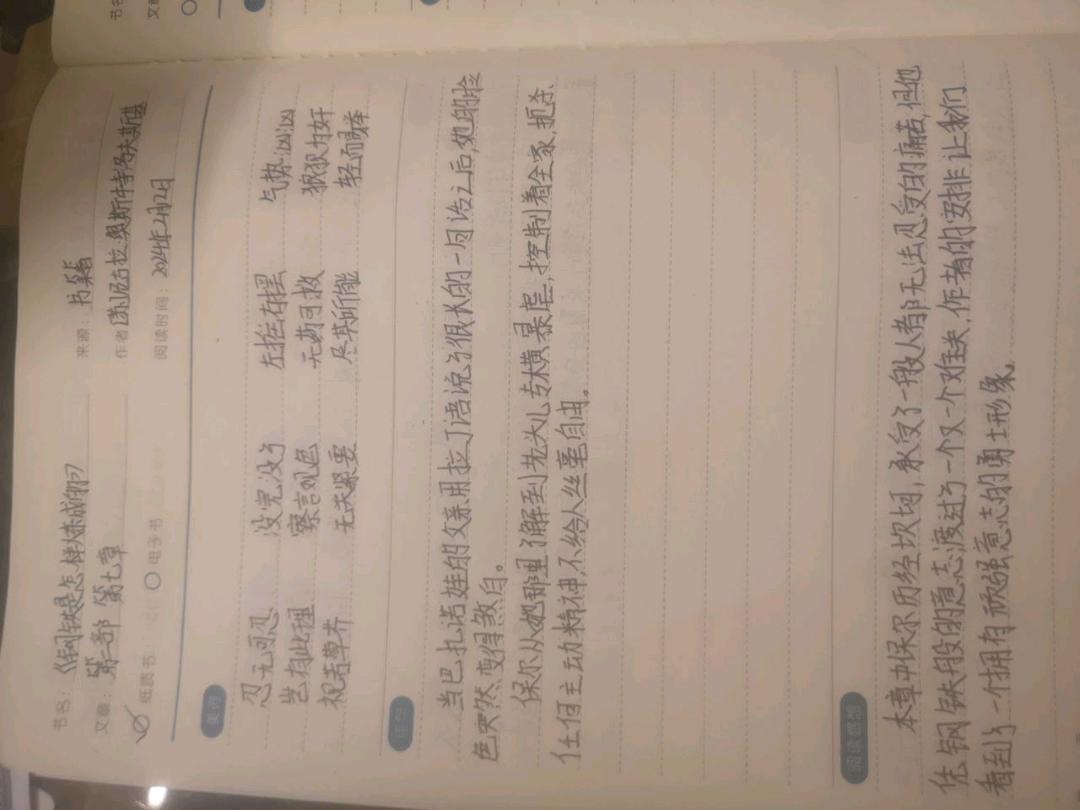 书名：《钢铁是怎样炼成的》 来源：书籍
文章：第二部 第七章 作者：[苏]尼古拉·奥斯特洛夫斯基
纸质书： 电子书 阅读时间：2024年2月2日
美词
忍无可忍 没完没了 左摇右摆 气势汹汹
岂有此理 察言观色 无药可救 狼狈为奸
视若草芥 无关紧要 尽其所能 轻而易举
佳句
当巴扎诺娃的父亲用拉丁语说了很长的一句话之后,她的脸
色突然变得煞白。
保尔从她那里了解到老头儿专横暴虐,控制着全家,扼杀
任何主动精神,不给人丝毫自由。
阅读感想
本章中保尔历经坎坷,承受了一般人都无法忍受的痛苦,但他
凭钢铁般的意志渡过了一个又一个难关,作者的安排让我们
看到了一个拥有顽强意志的勇士形象。